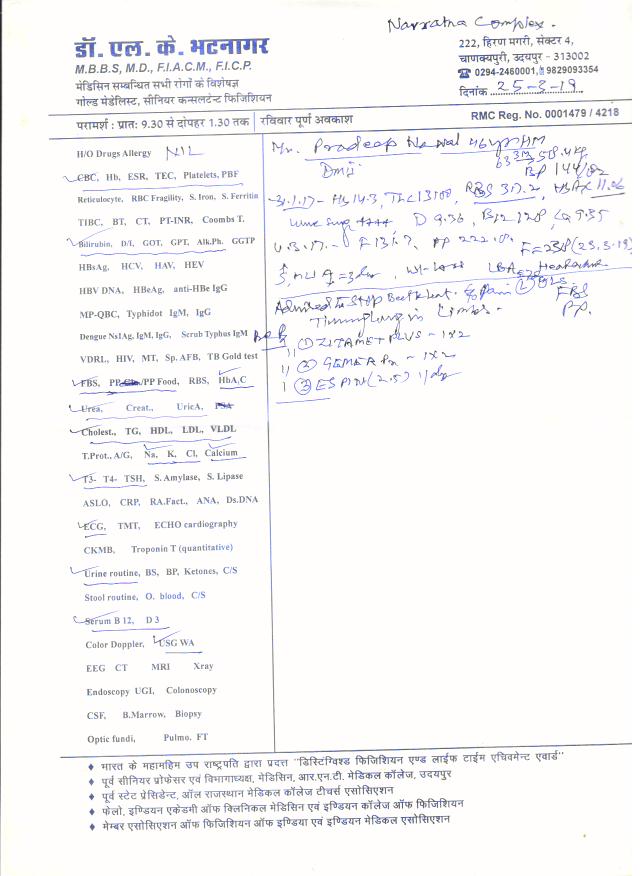 Navratna Complex.
डॉ. एल. के. भटनागर
M.B.B.S, M.D., F.I.A.C.M., F.I.C.P.
मेडिसिन सम्बन्धित सभी रोगों के विशेषज्ञ
गोल्ड मेडेलिस्ट, सीनियर कन्सलटेन्ट फिजिशियन
222, हिरण मगरी, सेक्टर 4,
चाणक्यपुरी, उदयपुर - 313002
0294-2460001, 9829093354
दिनांक 25-3-19
परामर्श : प्रातः 9.30 से दोपहर 1.30 तक | रविवार पूर्ण अवकाश
RMC Reg. No. 0001479 / 4218
H/O Drugs Allergy NIL
CBC, Hb, ESR, TEC, Platelets, PBF
Reticulocyte, RBC Fragility, S. Iron, S. Ferritin
TIBC, BT, CT, PT-INR, Coombs T.
Bilirubin, D/I, GOT, GPT, Alk.Ph. GGTP
HBsAg, HCV, HAV, HEV
HBV DNA, HBeAg, anti-HBe IgG
MP-QBC, Typhidot IgM, IgG
Dengue Ns1Ag, IgM, IgG, Scrub Typhus IgM
VDRL, HIV, MT, Sp. AFB, TB Gold test
FBS, /PP Food, RBS, HbA,C
Urea, Creat., UricA, PSA
Cholest., TG, HDL, LDL, VLDL
T.Prot., A/G, Na, K, Cl, Calcium
T3- T4- TSH, S. Amylase, S. Lipase
ASLO, CRP, RA.Fact., ANA, Ds.DNA
ECG, TMT, ECHO cardiography
CKMB, Troponin T (quantitative)
Urine routine, BS, BP, Ketones, C/S
Stool routine, O. blood, C/S
Serum B 12, D 3
Color Doppler, USG WA
EEG CT MRI Xray
Endoscopy UGI, Colonoscopy
CSF, B.Marrow, Biopsy
Optic fundi, Pulmo. FT
Mr. Pradeep 46yr
58.4kg
BP 144/82
31.1.17- Hb 14.3, TLC 13100, RBS 317.2, 11.06
Urine Sug ++++ D 9.36, B12 128
PP 222. F=238 (25.3.19)
Headache
FBS
PP.
in Limbs.
1) ZITAMET PLUS - 1x2
2) GEMER - 1x2
3) (2.5) 1/day
♦ भारत के महामहिम उप राष्ट्रपति द्वारा प्रदत्त "डिस्टिंग्विश्ड फिजिशियन एण्ड लाईफ टाईम एचिवमेन्ट एवार्ड"
♦ पूर्व सीनियर प्रोफेसर एवं विभागाध्यक्ष, मेडिसिन, आर.एन.टी. मेडिकल कॉलेज, उदयपुर
♦ पूर्व स्टेट प्रेसिडेन्ट, ऑल राजस्थान मेडिकल कॉलेज टीचर्स एसोसिएशन
♦ फेलो, इण्डियन एकेडमी ऑफ क्लिनिकल मेडिसिन एवं इण्डियन कॉलेज ऑफ फिजिशियन
♦ मेम्बर एसोसिएशन ऑफ फिजिशियन ऑफ इण्डिया एवं इण्डियन मेडिकल एसोसिएशन